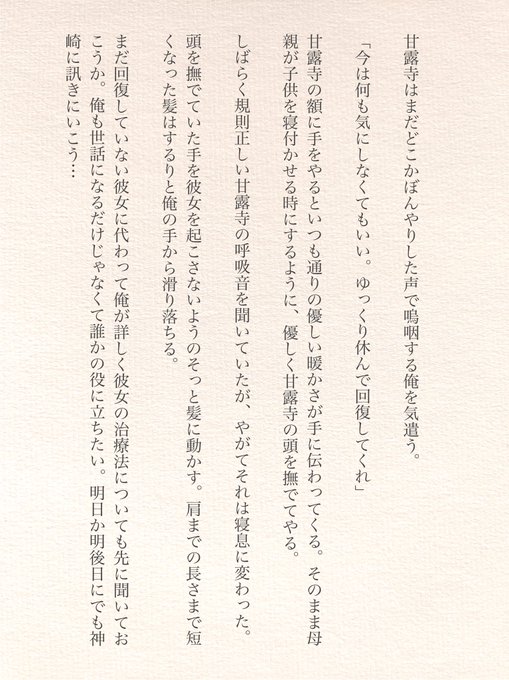 甘露寺はまだどこかぼんやりした声で嗚咽する俺を気遣う。
「今は何も気にしなくてもいい。ゆっくり休んで回復してくれ」
甘露寺の額に手をやるといつも通りの優しい暖かさが手に伝わってくる。そのまま母
親が子供を寝付かせる時にするように、優しく甘露寺の頭を撫でてやる。
しばらく規則正しい甘露寺の呼吸音を聞いていたが、やがてそれは寝息に変わった。
頭を撫でていた手を彼女を起こさないようのそっと髪に動かす。肩までの長さまで短
くなった髪はするりと俺の手から滑り落ちる。
まだ回復していない彼女に代わって俺が詳しく彼女の治療法についても先に聞いてお
こうか。俺も世話になるだけじゃなくて誰かの役に立ちたい。明日か明後日にでも神
崎に訊きにいこう…